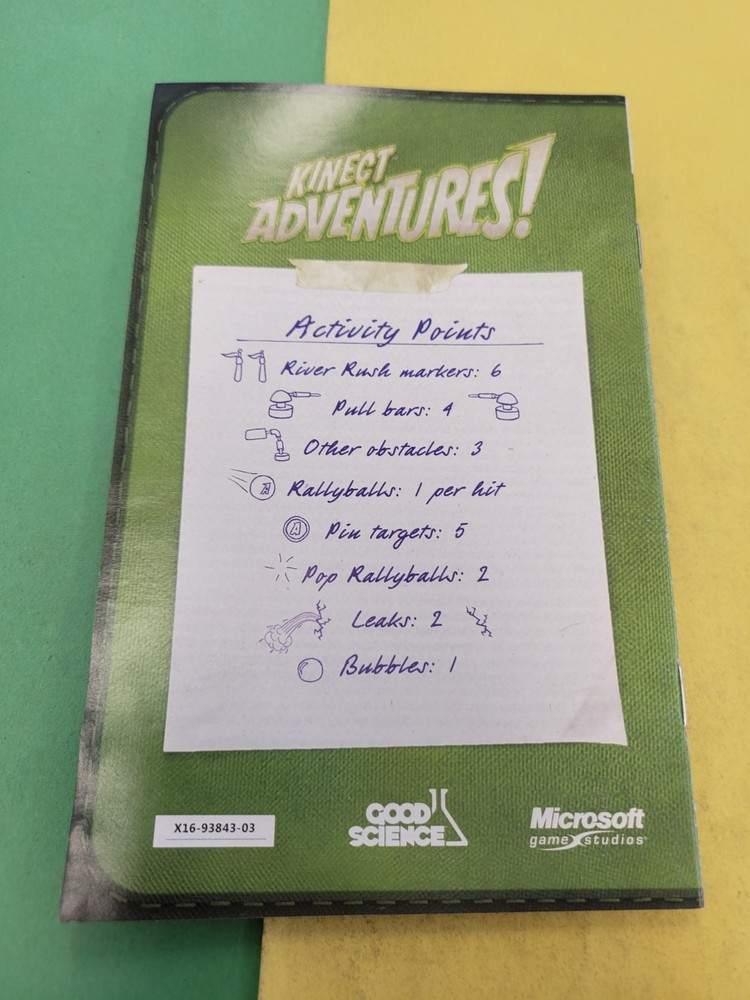 KINECT
ADVENTURES!
Activity Points
River Rush markers: 6
Pull bars: 4
Other obstacles: 3
Rallyballs: 1 per hit
A Pin targets: 5
Pop Rallyballs: 2
Leaks: 2
Bubbles: 1
X16-93843-03
GOOD
SCIENCE
Microsoft
game studios